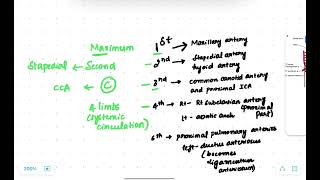 Maximum 1st → Maxillary artery
Stapedial ← Second - 2nd → Stapedial artery
hyoid artery
CCA ← C - 3rd → common carotid artery
and proximal ICA
4 limbs - 4th Rt- Rt Subclavian artery
(systemic (proximal part)
circulation) lt- aortic arch
6th → proximal pulmonary arteries
left - ductus arteriosus
(becomes
ligamentum
arteriosum)
200%